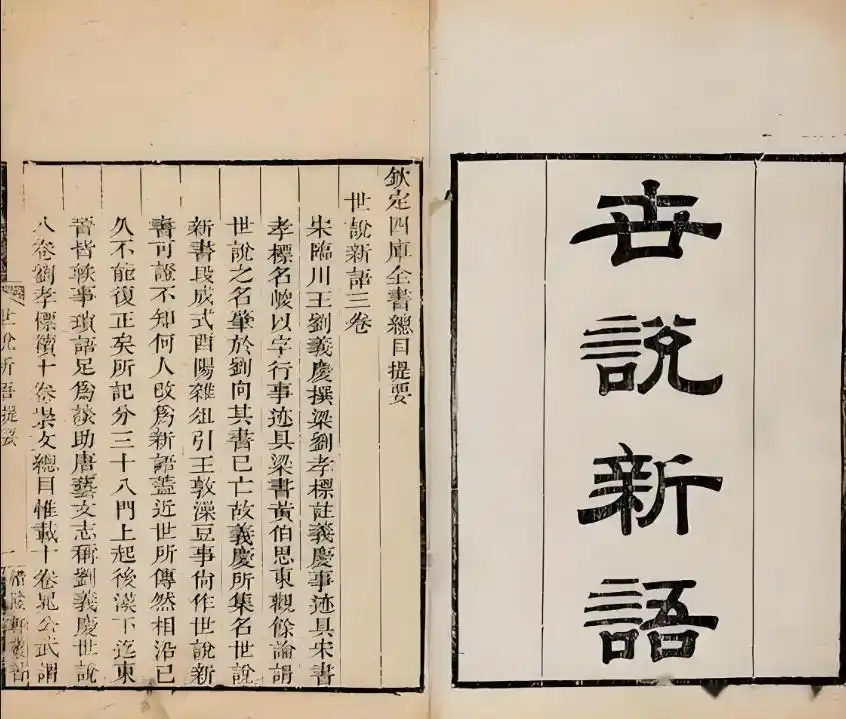 世說新語
欽定四庫全書總目提要
世說新語三卷
宋臨川王劉義慶撰梁劉孝標註義慶事迹具宋書
孝標名峻以字行事迹具梁書黃伯思東觀餘論謂
世說之名肇於劉向其書已亡故義慶所集名世說
新書段成式酉陽雜俎引王敦澡豆事尙作世說新
書可證不知何人改爲新語蓋近世所傳然相沿已
久不能復正矣所記分三十八門上起後漢下迄東
晉皆軼事瑣語足爲談助唐藝文志稱劉義慶世說
八卷劉孝標續十卷崇文總目惟載十卷晁公武謂
世說新語提要
一
惜陰軒叢書